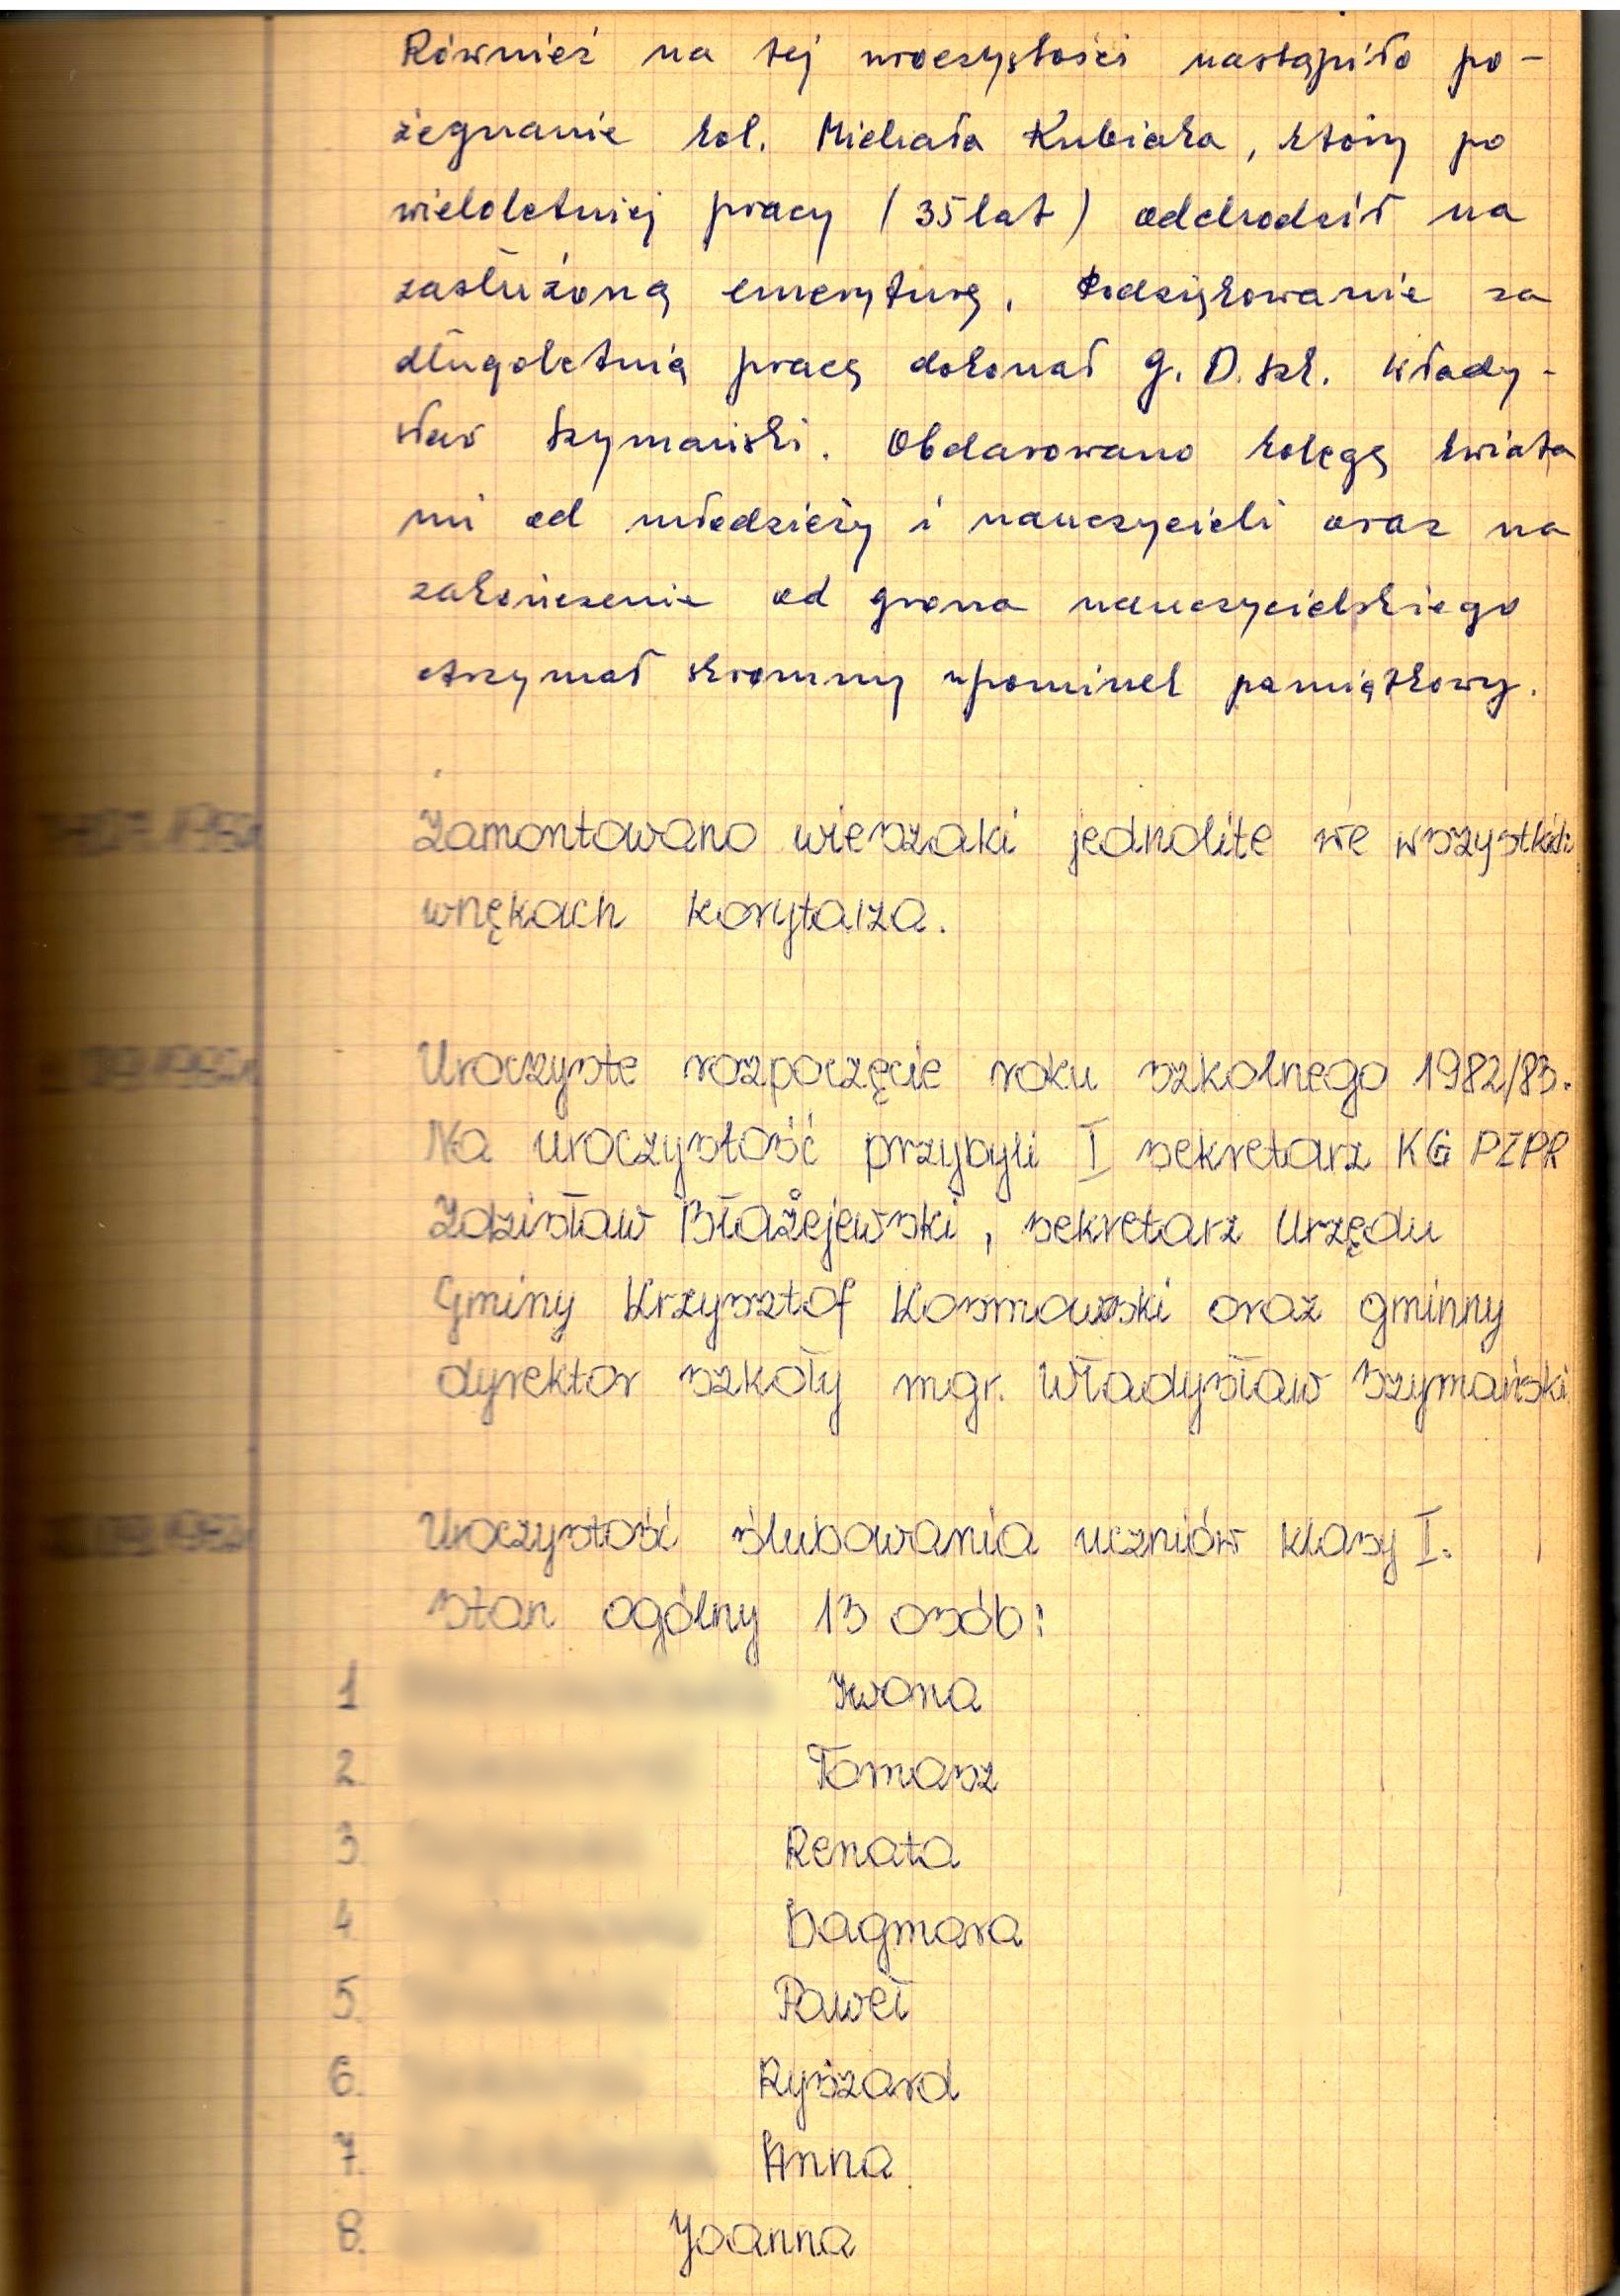 Również na tej uroczystości nastąpiło po-
żegnanie kol. Michała Kubiaka, który po
wieloletniej pracy (35 lat) odchodził na
zasłużoną emeryturę. Podziękowanie za
długoletnią pracę dokonał G. D. Szk. Włady-
sław Szymański. Obdarowano kolegę kwiata
mi od młodzieży i nauczycieli oraz na
zakończenie od grona nauczycielskiego
otrzymał skromny upominek pamiątkowy.
Zamontowano wieszaki jednolite we wszystkich
wnękach korytarza.
Uroczyste rozpoczęcie roku szkolnego 1982/83.
Na uroczystość przybyli I sekretarz KG PZPR
Zdzisław Błażejewski, sekretarz Urzędu
Gminy Krzysztof Kosmowski oraz gminny
dyrektor szkoły mgr. Władysław Szymański
Uroczystość ślubowania uczniów klasy I.
Stan ogólny 13 osób:
1 Iwona
2. Tomasz
3. Renata
4 Dagmara
5. Paweł
6. Ryszard
7. Anna
8. Joanna